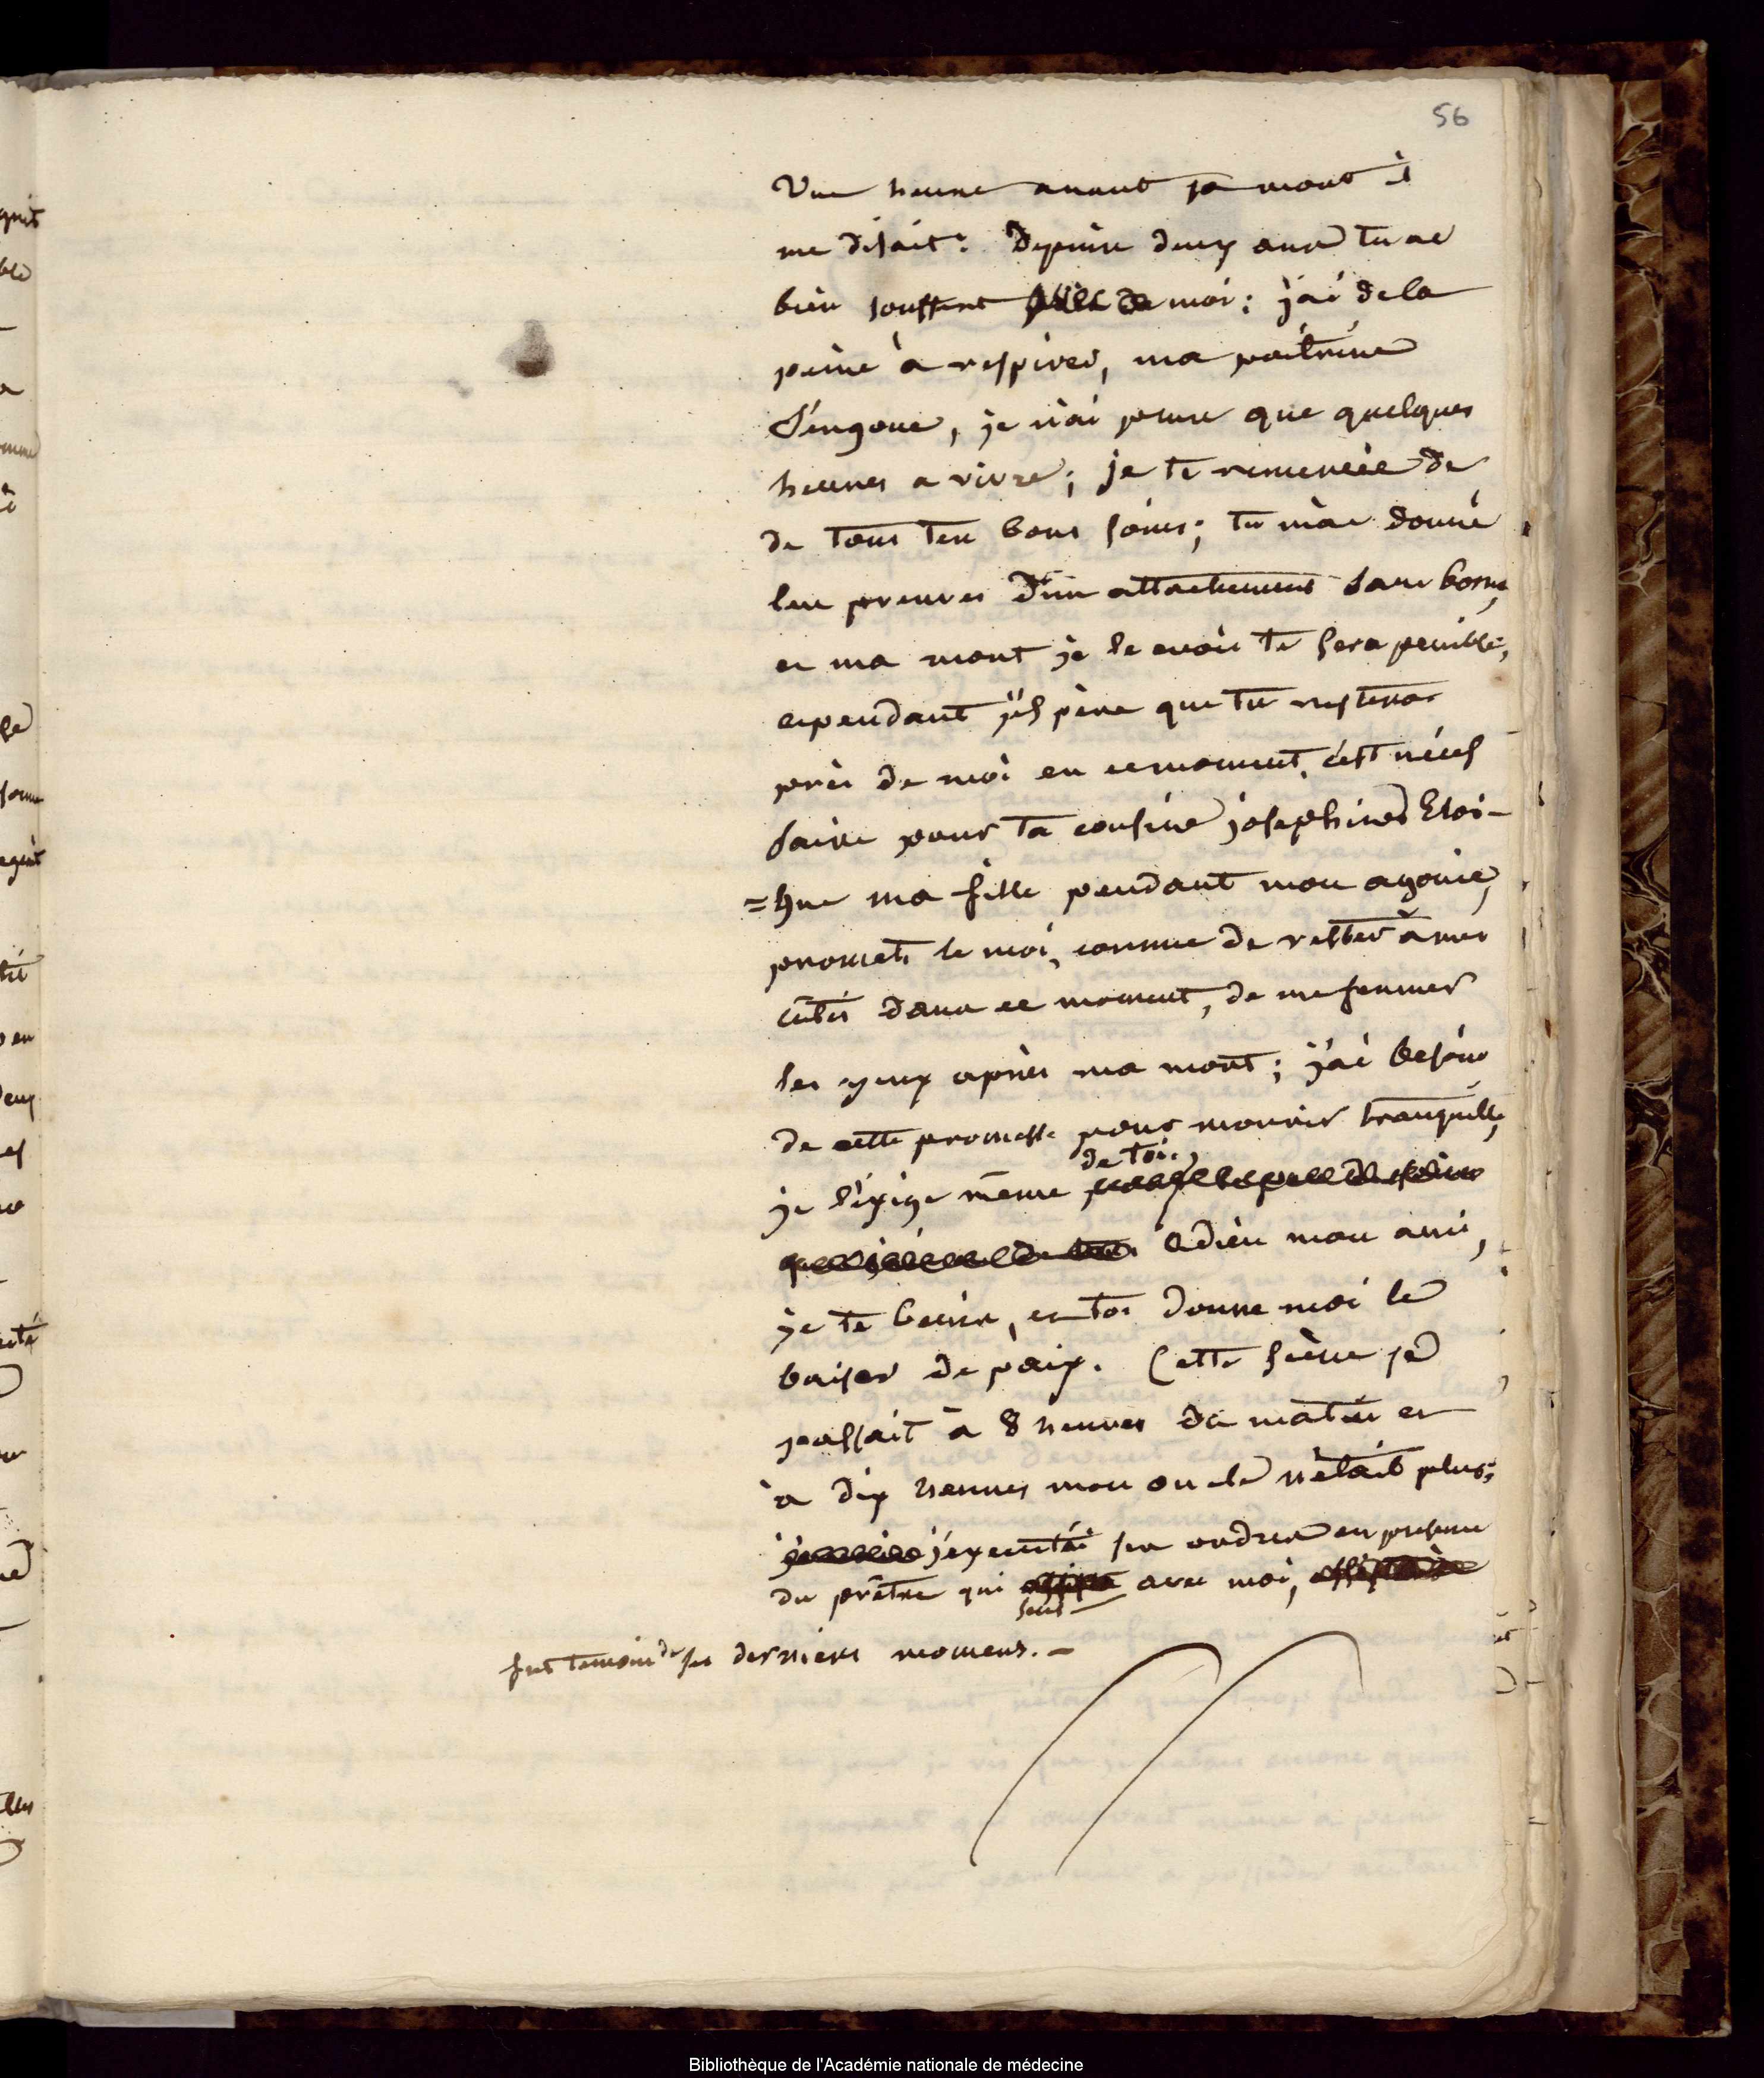 56
Une heure avant sa mort il
me disait: Depuis deux ans tu as
bien souffert moi: j'ai de la
peine à respirer, ma poitrine
s'engoue, je n'ai plus que quelques
heures a vivre; je te remercie de
de tous tes bons soins; tu m'as donné
les preuves d'un attachement sans borne,
et ma mort je le crois te sera penible,
cependant j'espère que tu resteras
près de moi en ce moment, c'est neces
saire pour ta cousine josephine Eloi-
=gne ma fille pendant mon agonie,
promets le moi, comme de rester à mes
cotés dans ce moment, de me fermer
les yeux après ma mort; j'ai besoin
de cette promesse pour mourir tranquille,
je l'exige même de toi.
adieu mon ami,
je te benis, et toi donne moi le
baiser de paix. Cette scène se
passait à 8 heures du matin et
à dix heures mon oncle n'était plus;
j'executai ses ordres en presence
du prêtre qui seul avec moi,
fut temoin de ses derniers momens. -
Bibliothèque de l'Académie nationale de médecine